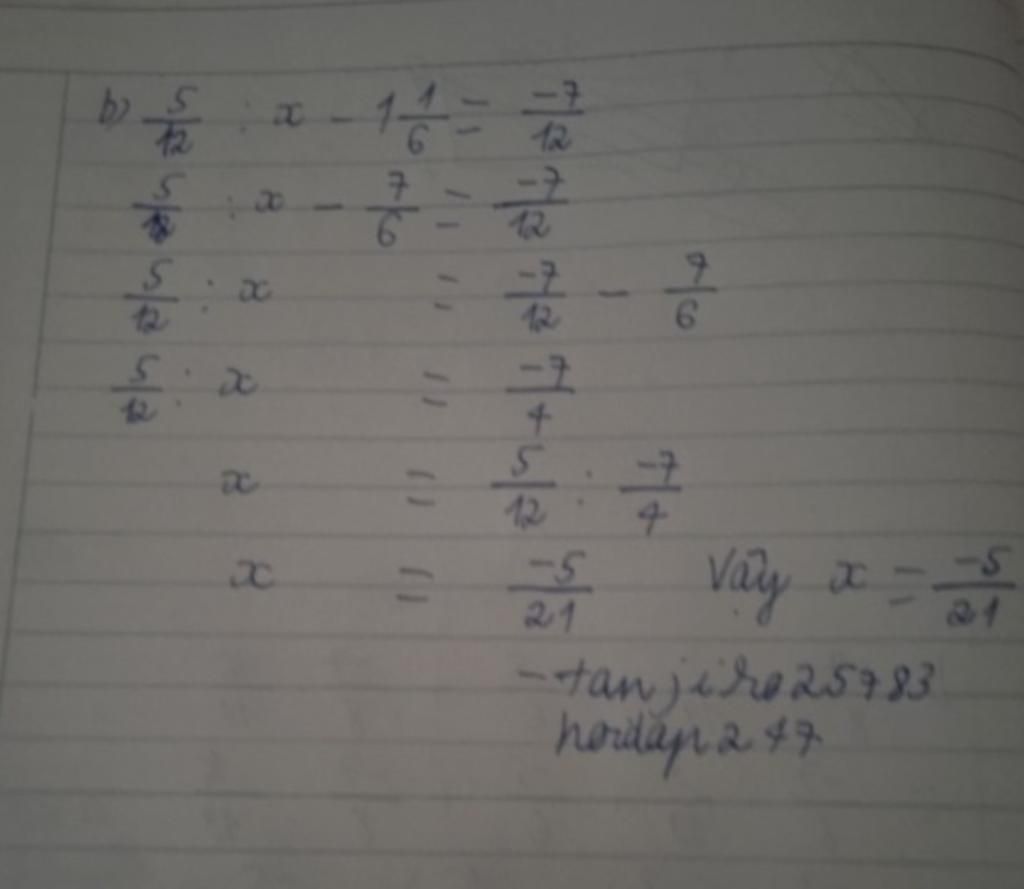 b) 5/12 : x - 1 1/6 = -7/12
5/12 : x - 7/6 = -7/12
5/12 : x = -7/12 - 7/6
5/12 : x = -7/4
x = 5/12 : -7/4
x = -5/21 Vậy x = -5/21
- tanjiro25783
hoidap247